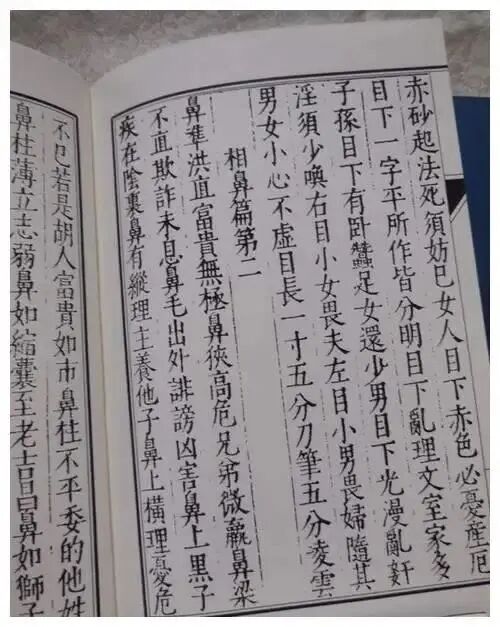 赤砂起法死須妨巳女人目下赤色必憂產厄
目下一字平所作皆分明目下亂理文室家多
子孫目下有臥蠶足女還少男目下光漫亂姧
淫須少喚右目小女畏夫左目小男畏婦隨其
男女小心不虛目長一寸五分刀筆五分凌雲
相鼻篇第二
鼻準洪直富貴無極鼻狹高危兄弟微羸鼻梁
不直欺詐未息鼻毛出外誹謗凶害鼻上黑子
疾在陰裏鼻有縱理主養他子鼻上橫理憂危
不已若是胡人富貴如市鼻柱不平委的他姓
鼻柱薄立志弱鼻如縮囊至老吉昌鼻如獅子